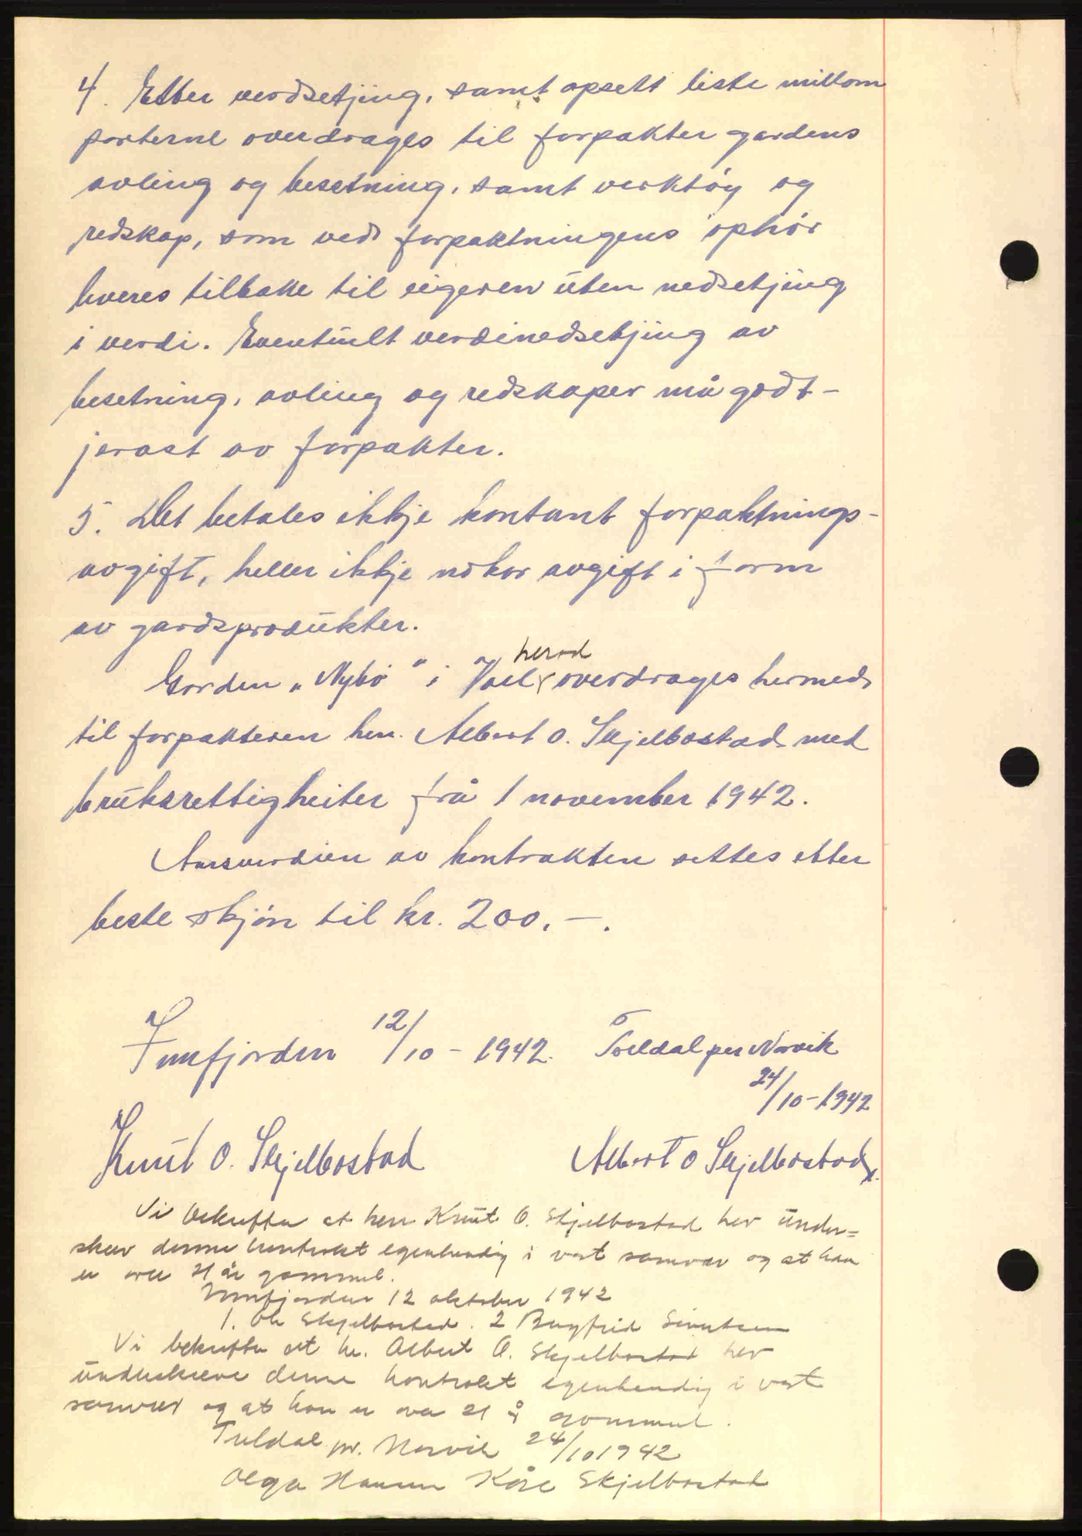 4. Etter verdsetjing, samt opsett liste millom
parterne overdrages til forpakter gardens
avling og besetning, samt verktöy og
redskap, som ved forpaktningens ophör
leveres tilbake til eigeren uten nedsetjing
i verdi. Eventuelt verdinedsetjing av
besetning, avling og redskaper må godt-
jerast av forpakter.
5. Det betales ikkje kontant forpaktnings-
avgift, heller ikkje nokor avgift i form
av gardsprodukter.
Garden "Nybö" i herad overdrages hermed
til forpakteren herr. Albert O. Skjelbostad med
bruksrettigheiter frå 1 november 1942.
Aarsverdien av kontrakten settes etter
beste skjön til kr. 200.-.
12/10-1942. Treldal per Narvik
24/10-1942
Knut O. Skjelbostad Albert O Skjelbostad
Vi bekrefter at herr Knut O. Skjelbostad har under=
skrev denne kontrakt egenhendig i vart samvær og at han
er over 21 år gammel.
12 oktober 1942
1. Ole Skjelbostad. 2 Sivertsen
Vi bekrefter at hr. Albert O. Skjelbostad har
underskreve denne kontrakt egenhendig i vart
samvær og at han er over 21 år gammel.
Treldal pr. Narvik 24/10 1942
Olga Hansen Kåre Skjelbostad